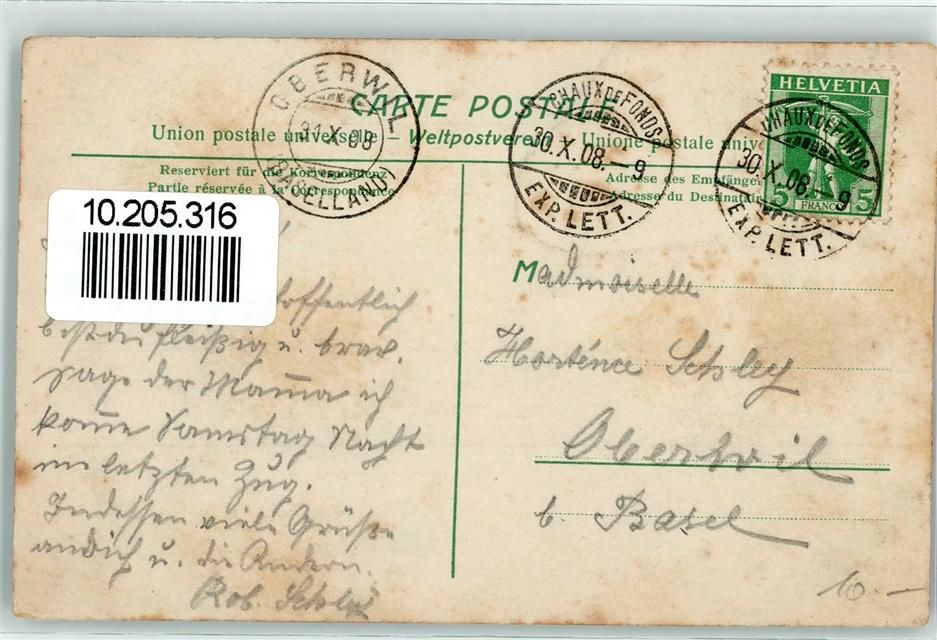 CARTE POSTALE
Union postale universelle — Weltpostverein — Unione postale univ
Reserviert für die Korrespondenz
Partie réservée à la Correspondance
Adresse des Empfänger
Adresse du Destinatai
OBERWIL
31.X.08
(BASELLAND)
CHAUX DE FONDS
30.X.08.-9
EXP. LETT.
HELVETIA
5 FRANCO 5
CHAUX DE FONDS
30.X.08.-9
EXP. LETT.
10.205.316
hoffentlich
bist du fleißig u. brav.
sage der Mama ich
komme Samstag Nacht
im letzten Zug.
Indessen viele Grüße
an dich u. die Andern.
Rob. Schley
Mademoiselle
Horténce Schley
Oberwil
b. Basel
10.-